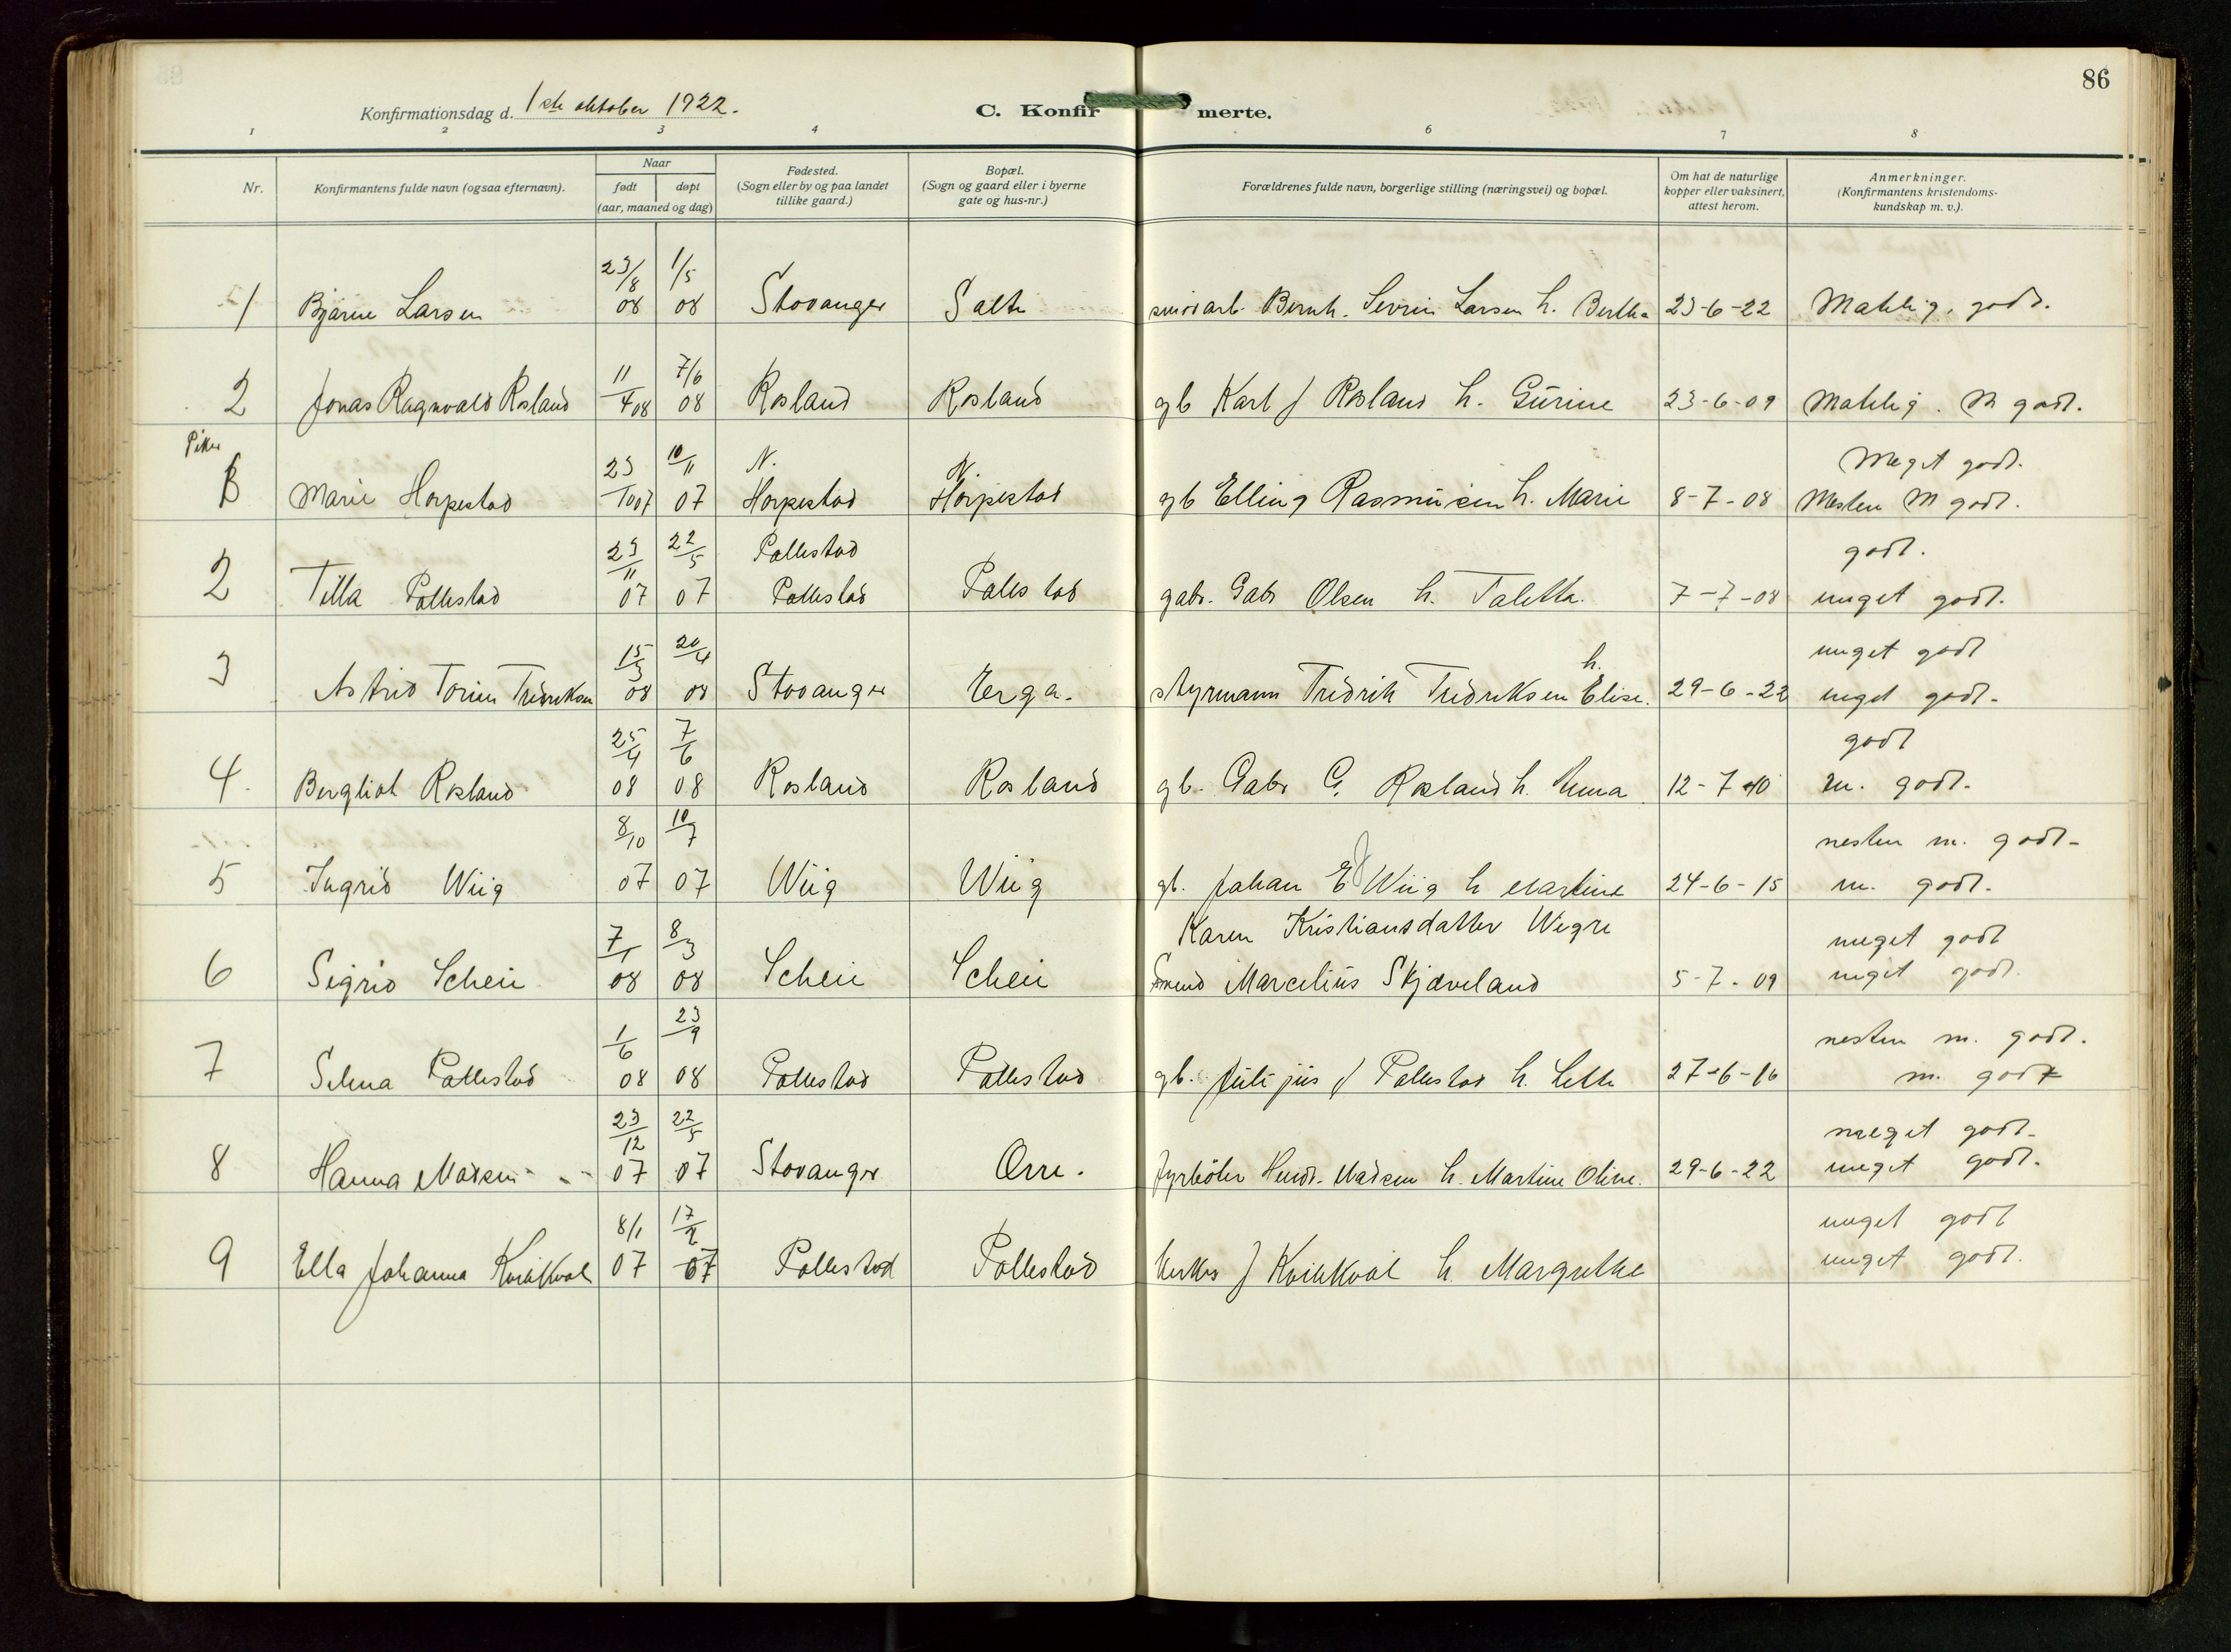 86
Konfirmationsdag d. 1ste oktober 1922.
C. Konfirmerte.
1 2 3 4 6 7 8
Nr.
Konfirmantens fulde navn (ogsaa efternavn).
Naar
født
døpt
(aar, maaned og dag)
Fødested.
(Sogn eller by og paa landet
tillike gaard.)
Bopæl.
(Sogn og gaard eller i byerne
gate og hus-nr.)
Forældrenes fulde navn, borgerlige stilling (næringsvei) og bopæl.
Om hat de naturlige
kopper eller vaksinert,
attest herom.
Anmerkninger.
(Konfirmantens kristendoms-
kundskap m. v.).
23/8 1/5
1 Bjarne Larsen 08 08 Stavanger Salte Bernh. Sevrin Larsen h. Bertha 23-6-22 Mattelig. godt.
11 7/6
2 Jonas Ragnvald Rosland /4 08 08 Rosland Rosland gb Karl J Rosland h. Gurine 23-6-09 Mattelig. M godt.
Piker
23 10/11 N. N. Meget godt.
1 Marie Horpestad /10 07 07 Horpestad Horpestad gb Elling Rasmussen h. Marie 8-7-08 Nesten M godt.
23/11 22/5 Pollestad godt.
2 Tilla Pollestad 07 07 Pollestad Pollestad gabr. Gabr Olsen h. Taletta. 7-7-08 meget godt.
15/3 20/4 h. meget godt
3 Astrid Torine Fredriksen 08 08 Stavanger Erga. styrmann Fredrik Fredriksen Elise. 29-6-22 meget godt.
25/4 7/6 godt
4. Bergliot Rosland 08 08 Rosland Rosland gb. Gabr G. Rosland h. Anna 12-7-10 m. godt.
8/10 10/7 nesten m. godt.
5 Ingrid Wiig 07 07 Wiig Wiig gb. Johan E Wiig h Martine 24-6-15 m. godt.
7/1 8/3 Karen Kristiansdatter Wegre meget godt
6 Sigrid Scheie 08 08 Scheie Scheie Smend Marcelius Skjæveland 5-7-09 meget godt.
1/6 23/9 nesten m. godt.
7 Selma Pollestad 08 08 Pollestad Pollestad gb. Julijus J Pollestad h. Lette 27-6-16 m. godt
23/12 22/5 meget godt.
8 Hanna Madsen 07 07 Stavanger Orre. fyrbøter Hendr. Madsen h. Martine Oline. 29-6-22 meget godt.
8/1 17/2 meget godt
9 Ella Johanna Kvilkval 07 07 Pollestad Pollestad J Kvilkval h. Margrethe meget godt.